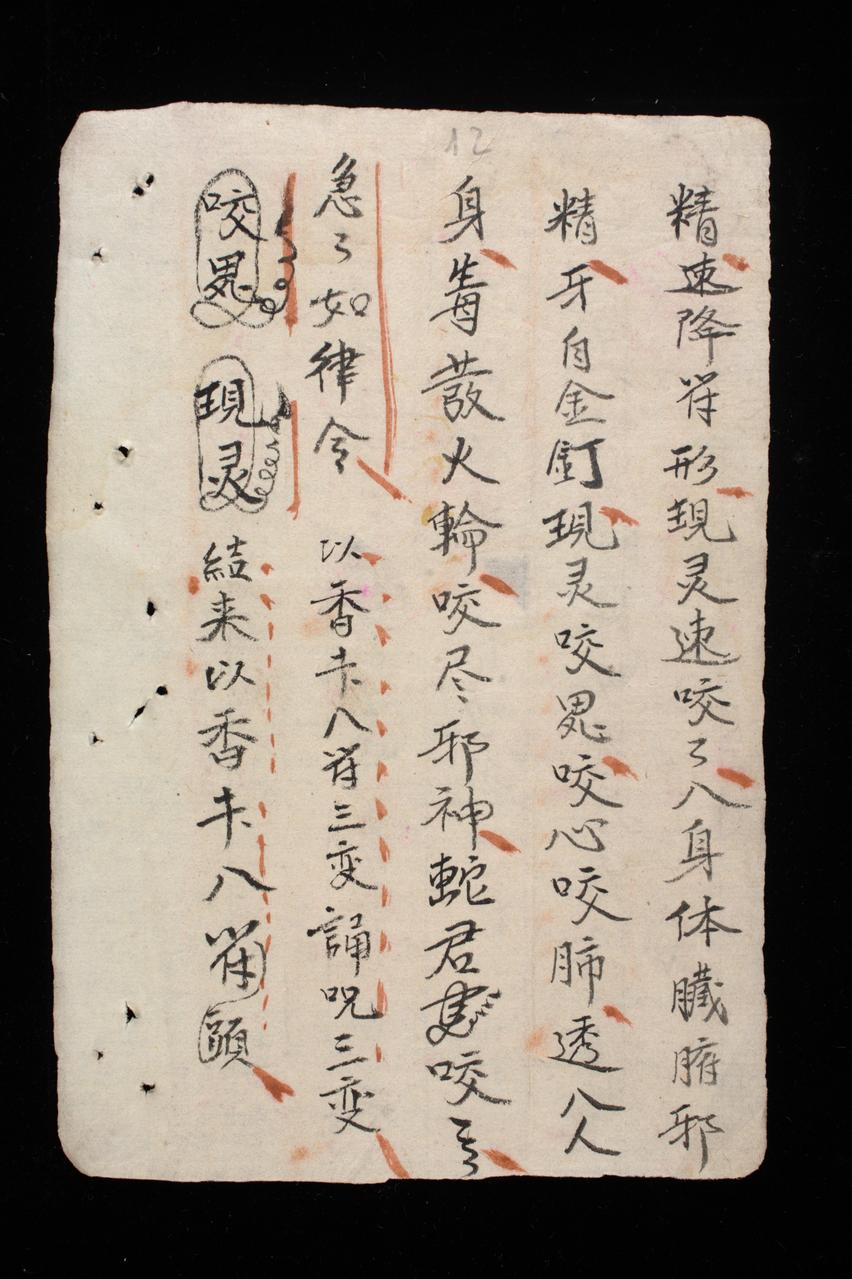 12
精速降符形現灵速咬々八身体臟腑邪
精牙自金釘現灵咬鬼咬心咬肺透八人
身毒發火輪咬尽邪神蛇君咬
急々如律令 以香卡八符三变誦呪三变
咬鬼 現灵 結来以香卡八符頭